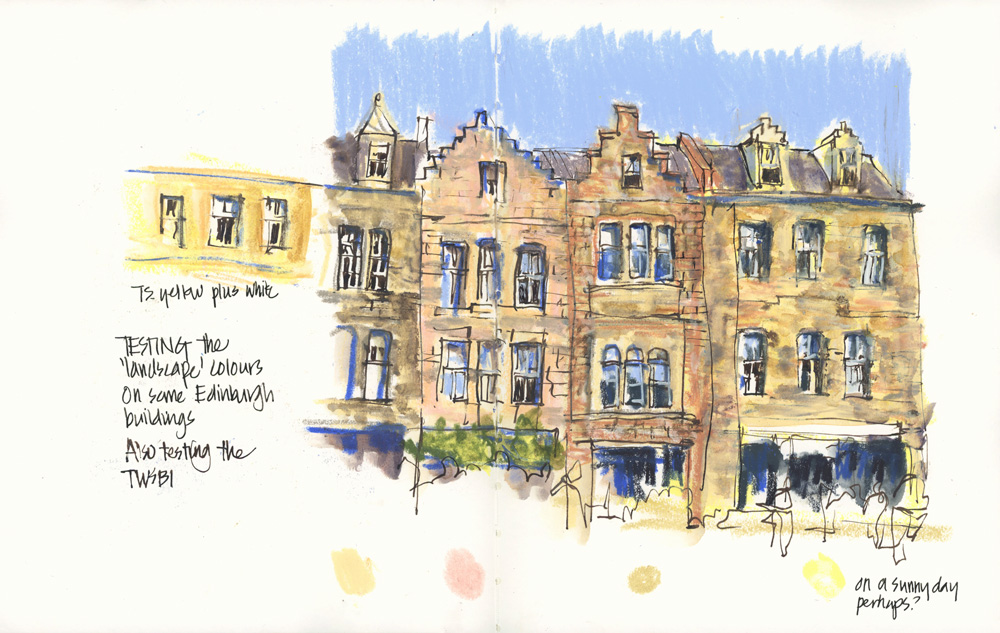 TESTING the
"landscape" colours
on some Edinburgh
buildings
Also testing the
TWSBI
yellow plus white
on a sunny day
perhaps?